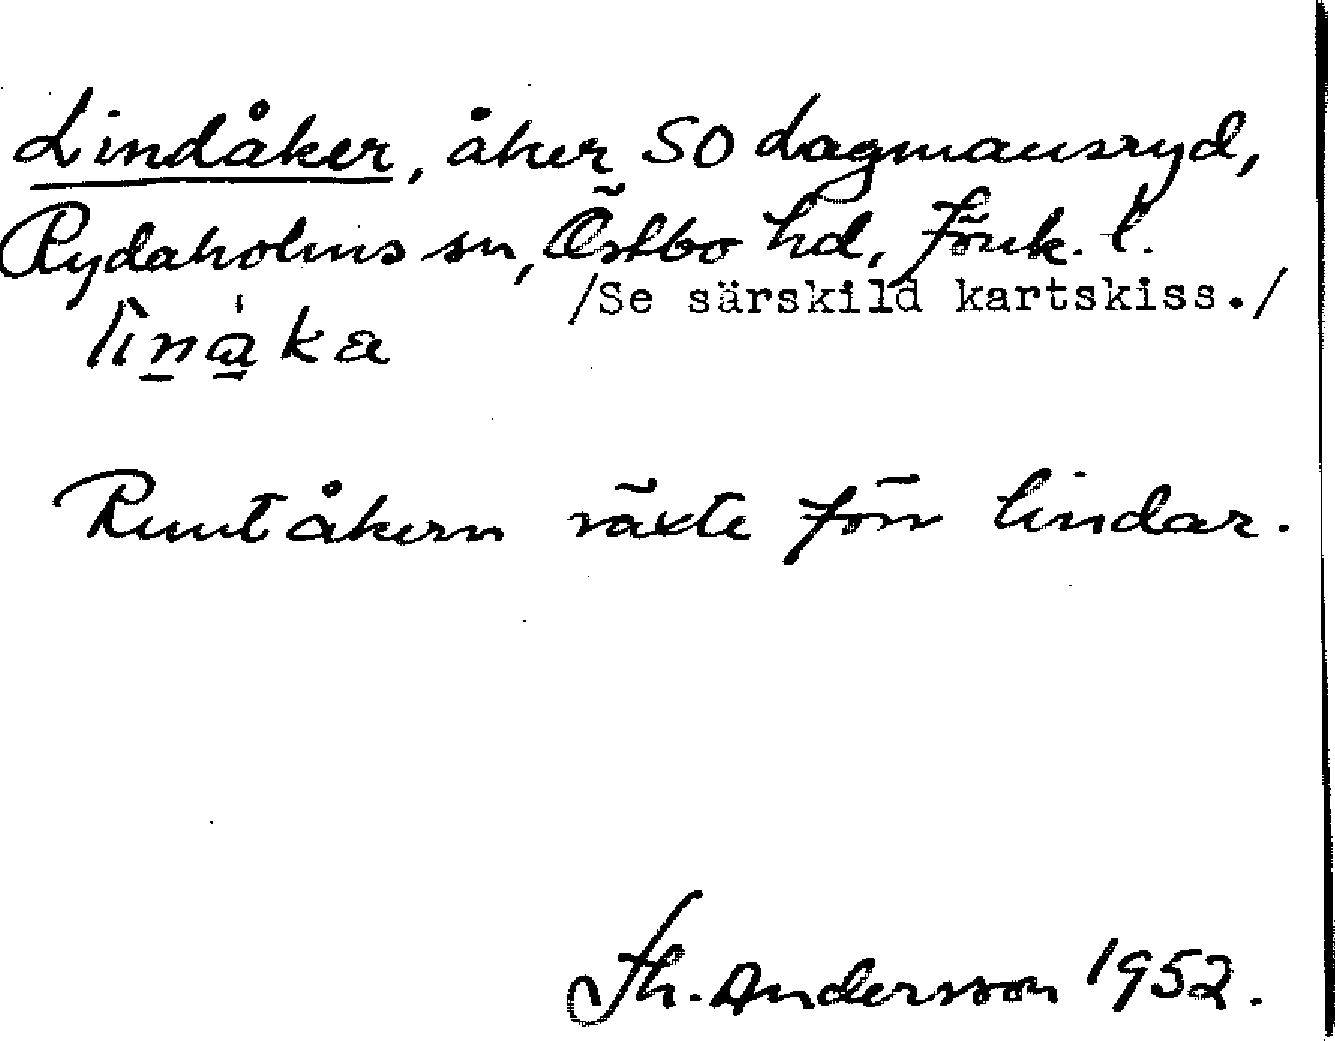 Lindåker, åker SO Lagmansryd,
Rydaholms sn, Östbo hd, Jönk. l.
/Se särskild kartskiss./
linåka
Runt åkern växte förr lindar.
Th. Andersson 1952.